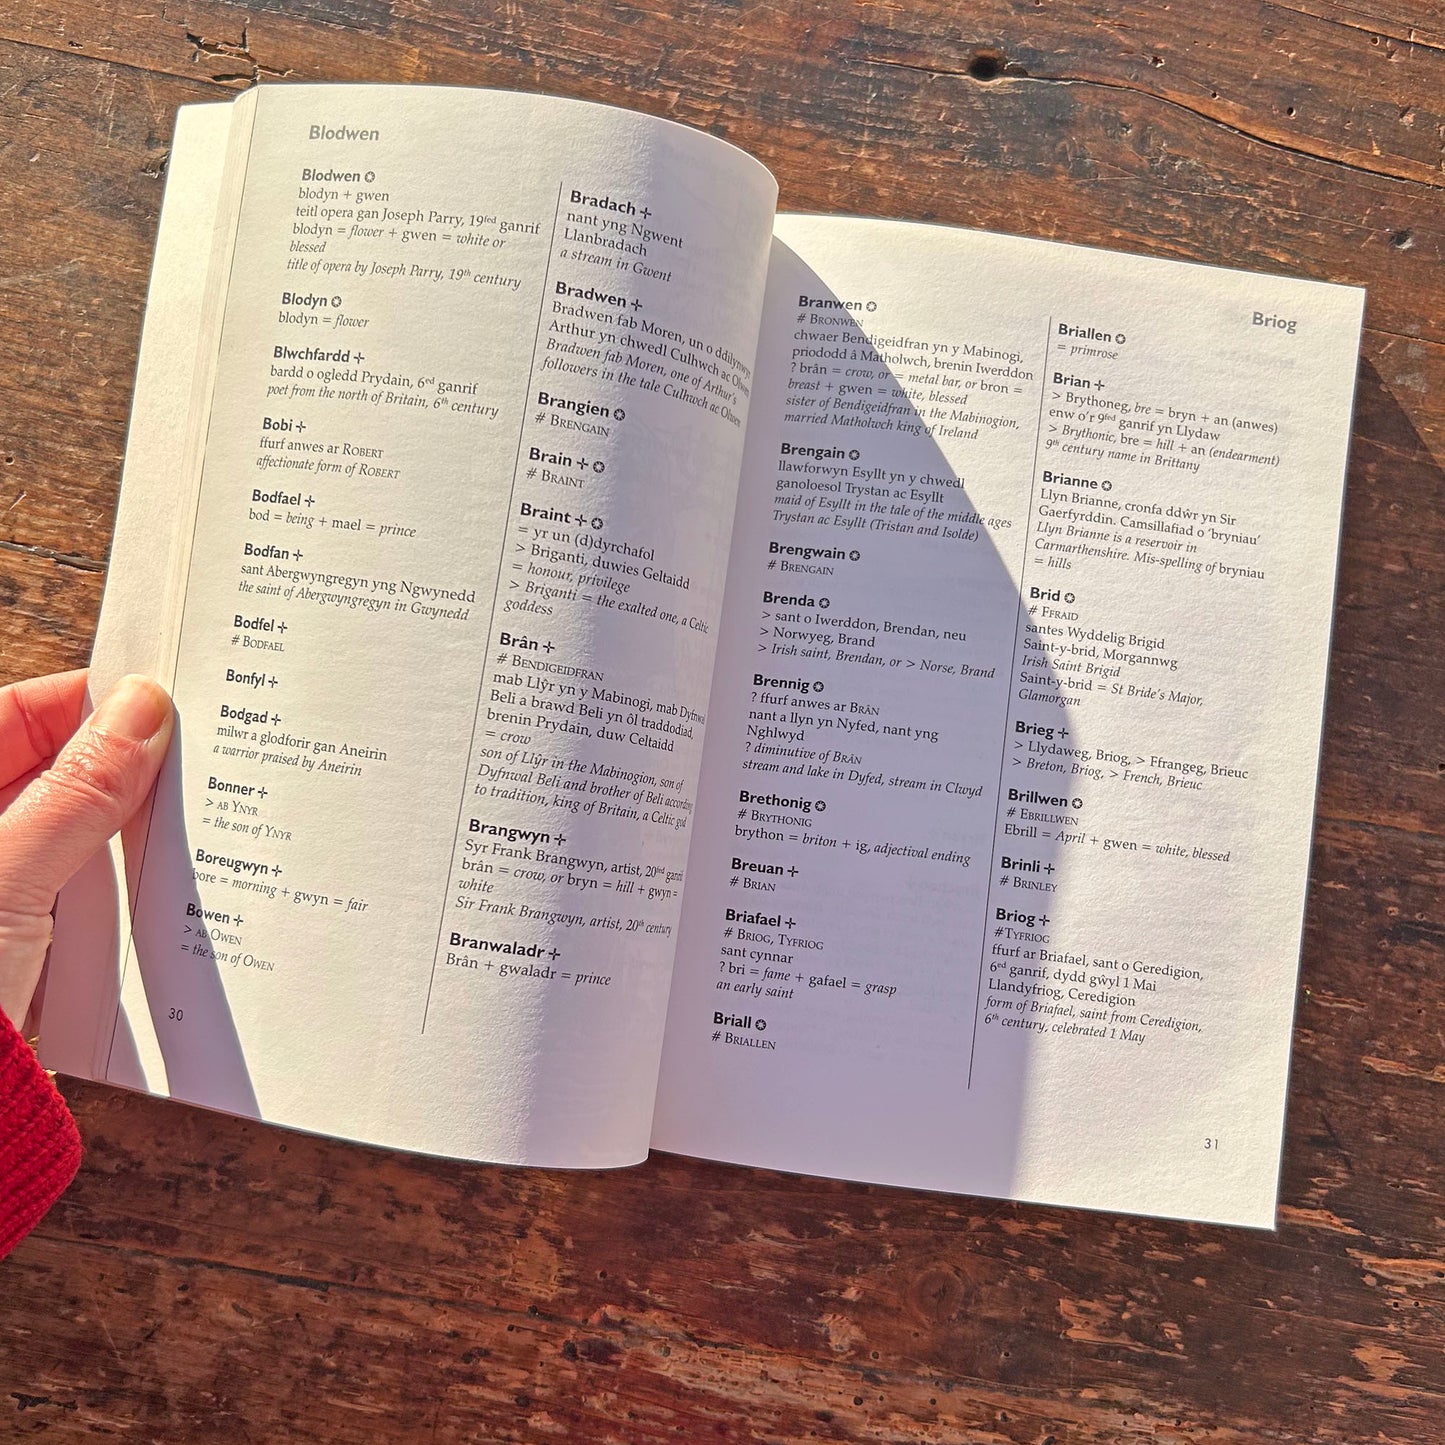 Blodwen
Blodwen ✪
blodyn + gwen
teitl opera gan Joseph Parry, 19fed ganrif
blodyn = flower + gwen = white or
blessed
title of opera by Joseph Parry, 19th century
Blodyn ✪
blodyn = flower
Blwchfardd ✢
bardd o ogledd Prydain, 6ed ganrif
poet from the north of Britain, 6th century
Bobi ✢
ffurf anwes ar ROBERT
affectionate form of ROBERT
Bodfael ✢
bod = being + mael = prince
Bodfan ✢
sant Abergwyngregyn yng Ngwynedd
the saint of Abergwyngregyn in Gwynedd
Bodfel ✢
# BODFAEL
Bonfyl ✢
Bodgad ✢
milwr a glodforir gan Aneirin
a warrior praised by Aneirin
Bonner ✢
> AB YNYR
= the son of YNYR
Boreugwyn ✢
bore = morning + gwyn = fair
Bowen ✢
> AB OWEN
= the son of OWEN
30
Bradach ✢
nant yng Ngwent
Llanbradach
a stream in Gwent
Bradwen ✢
Bradwen fab Moren, un o ddilynwyr
Arthur yn chwedl Culhwch ac Olwen
Bradwen fab Moren, one of Arthur's
followers in the tale Culhwch ac Olwen
Brangien ✪
# BRENGAIN
Brain ✢ ✪
# BRAINT
Braint ✢ ✪
= yr un (d)dyrchafol
> Briganti, duwies Geltaidd
= honour, privilege
> Briganti = the exalted one, a Celtic
goddess
Brân ✢
# BENDIGEIDFRAN
mab Llŷr yn y Mabinogi, mab Dyfnwal
Beli a brawd Beli yn ôl traddodiad,
brenin Prydain, duw Celtaidd
= crow
son of Llŷr in the Mabinogion, son of
Dyfnwal Beli and brother of Beli according
to tradition, king of Britain, a Celtic god
Brangwyn ✢
Syr Frank Brangwyn, artist, 20fed ganrif
brân = crow, or bryn = hill + gwyn =
white
Sir Frank Brangwyn, artist, 20th century
Branwaladr ✢
Brân + gwaladr = prince
Branwen ✪
# BRONWEN
chwaer Bendigeidfran yn y Mabinogi,
priododd â Matholwch, brenin Iwerddon
? brân = crow, or = metal bar, or bron =
breast + gwen = white, blessed
sister of Bendigeidfran in the Mabinogion,
married Matholwch king of Ireland
Brengain ✪
llawforwyn Esyllt yn y chwedl
ganoloesol Trystan ac Esyllt
maid of Esyllt in the tale of the middle ages
Trystan ac Esyllt (Tristan and Isolde)
Brengwain ✪
# BRENGAIN
Brenda ✪
> sant o Iwerddon, Brendan, neu
> Norwyeg, Brand
> Irish saint, Brendan, or > Norse, Brand
Brennig ✪
? ffurf anwes ar BRÂN
nant a llyn yn Nyfed, nant yng
Nghlwyd
? diminutive of BRÂN
stream and lake in Dyfed, stream in Clwyd
Brethonig ✪
# BRYTHONIG
brython = briton + ig, adjectival ending
Breuan ✢
# BRIAN
Briafael ✢
# BRIOG, TYFRIOG
sant cynnar
? bri = fame + gafael = grasp
an early saint
Briall ✪
# BRIALLEN
Briog
Briallen ✪
= primrose
Brian ✢
> Brythoneg, bre = bryn + an (anwes)
enw o'r 9fed ganrif yn Llydaw
> Brythonic, bre = hill + an (endearment)
9th century name in Brittany
Brianne ✪
Llyn Brianne, cronfa ddŵr yn Sir
Gaerfyrddin. Camsillafiad o 'bryniau'
Llyn Brianne is a reservoir in
Carmarthenshire. Mis-spelling of bryniau
= hills
Brid ✪
# FFRAID
santes Wyddelig Brigid
Saint-y-brid, Morgannwg
Irish Saint Brigid
Saint-y-brid = St Bride's Major,
Glamorgan
Brieg ✢
> Llydaweg, Briog, > Ffrangeg, Brieuc
> Breton, Briog, > French, Brieuc
Brillwen ✪
# EBRILLWEN
Ebrill = April + gwen = white, blessed
Brinli ✢
# BRINLEY
Briog ✢
#TYFRIOG
ffurf ar Briafael, sant o Geredigion,
6ed ganrif, dydd gŵyl 1 Mai
Llandyfriog, Ceredigion
form of Briafael, saint from Ceredigion,
6th century, celebrated 1 May
31